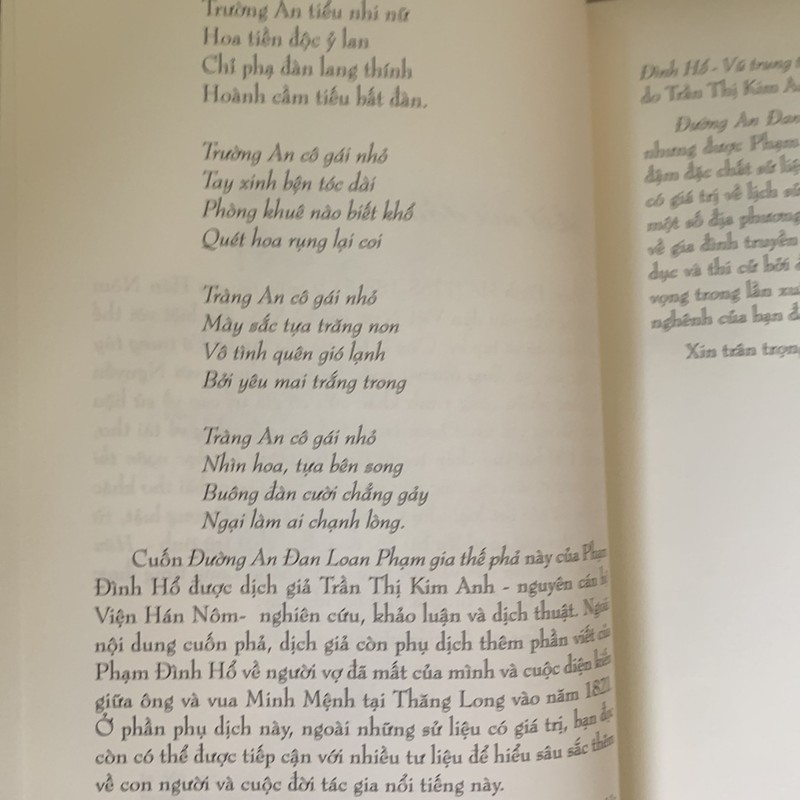 Trường An tiểu nhi nữ
Hoa tiền độc ỷ lan
Chỉ phạ đàn lang thính
Hoành cầm tiếu bất đàn.
Trường An cô gái nhỏ
Tay xinh bện tóc dài
Phòng khuê nào biết khổ
Quét hoa rụng lại coi
Tràng An cô gái nhỏ
Mày sắc tựa trăng non
Vô tình quên gió lạnh
Bởi yêu mai trắng trong
Tràng An cô gái nhỏ
Nhìn hoa, tựa bên song
Buông đàn cười chẳng gảy
Ngại làm ai chạnh lòng.
Cuốn Đường An Đan Loan Phạm gia thế phả này của Phạm
Đình Hổ được dịch giả Trần Thị Kim Anh - nguyên cán bộ
Viện Hán Nôm- nghiên cứu, khảo luận và dịch thuật. Ngoài
nội dung cuốn phả, dịch giả còn phụ dịch thêm phần viết của
Phạm Đình Hổ về người vợ đã mất của mình và cuộc diện kiến
giữa ông và vua Minh Mệnh tại Thăng Long vào năm 1821.
Ở phần phụ dịch này, ngoài những sử liệu có giá trị, bạn đọc
còn có thể được tiếp cận với nhiều tư liệu để hiểu sâu sắc thêm
về con người và cuộc đời tác gia nổi tiếng này.
Đình Hổ - Vũ trung
do Trần Thị Kim
Đường An Đan
nhưng được Phạm
đậm đặc chất sử liệu
có giá trị về lịch sử
một số địa phương
về gia đình truyền
dục và thi cử bởi
vọng trong lần
nghênh của bạn
Xin trân trọng